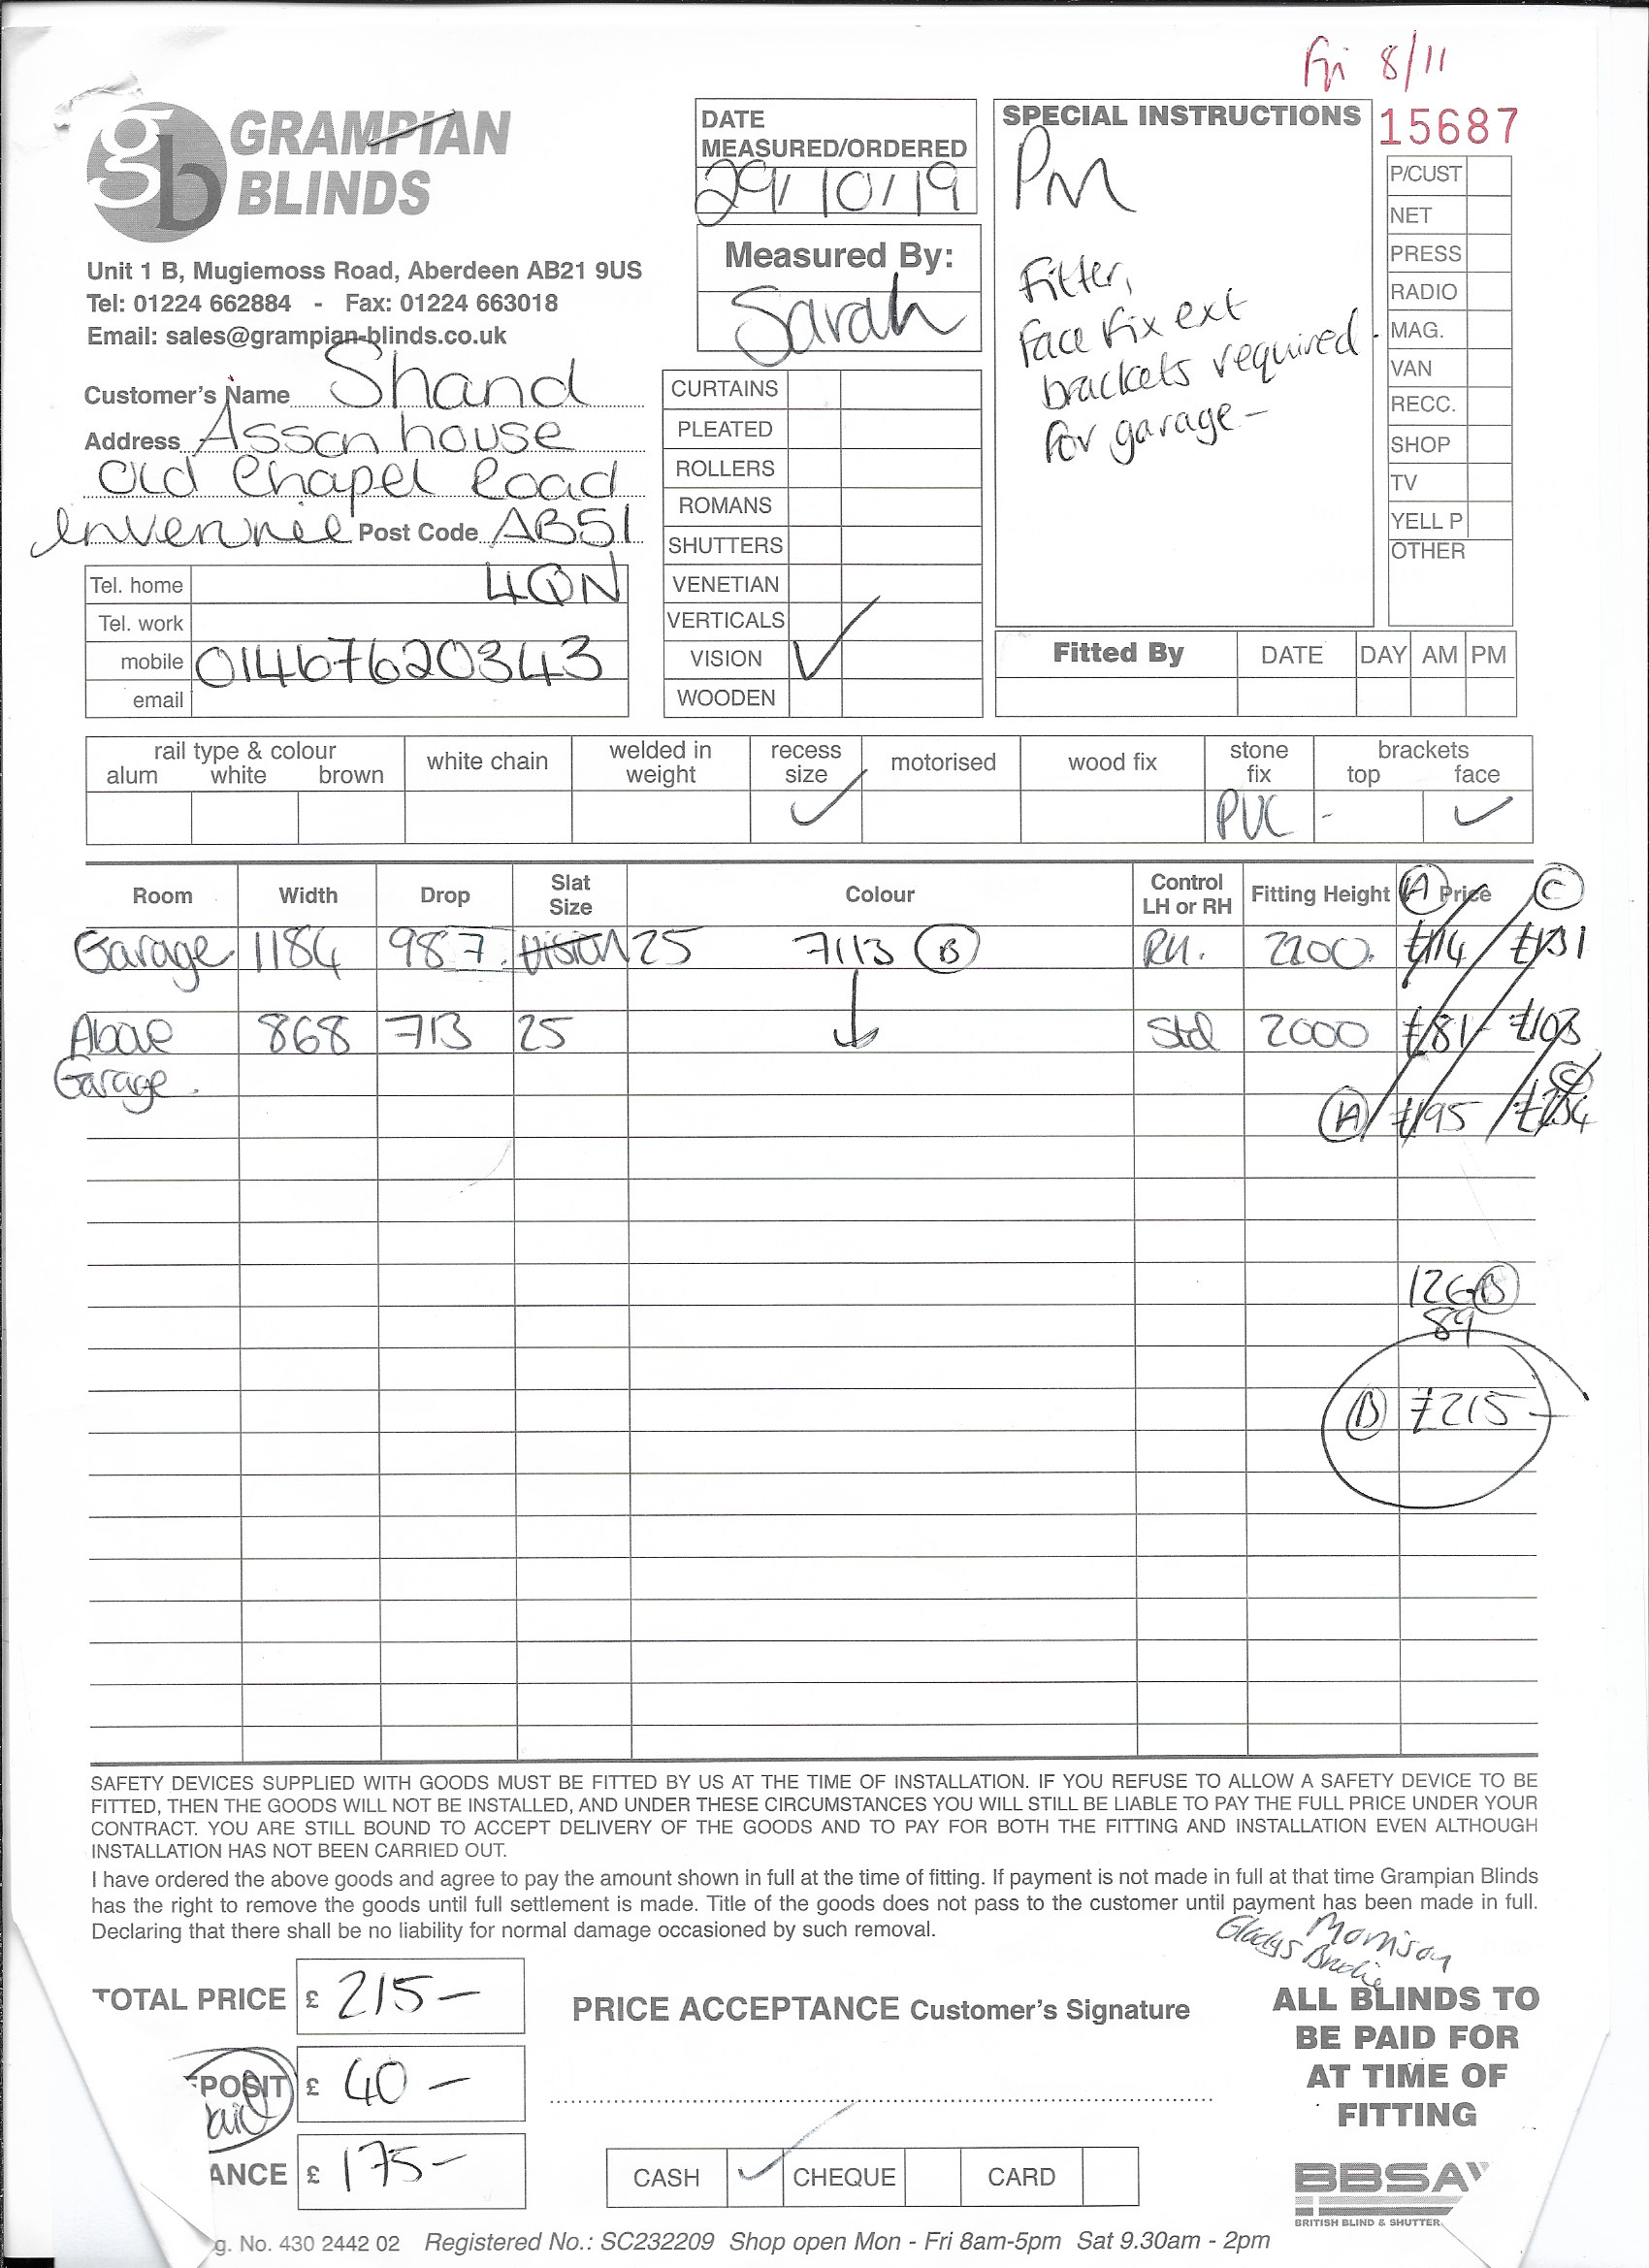 Fri 8/11
GRAMPIAN
BLINDS
Unit 1 B, Mugiemoss Road, Aberdeen AB21 9US
Tel: 01224 662884 - Fax: 01224 663018
Email: sales@grampian-blinds.co.uk
DATE
MEASURED/ORDERED
29/10/19
Measured By:
Sarah
SPECIAL INSTRUCTIONS
PM
Fitter,
Face fix ext
brackets required
for garage -
15687
P/CUST
NET
PRESS
RADIO
MAG.
VAN
RECC.
SHOP
TV
YELL P
OTHER
Customer's Name Shand
Address Assan house
Old Chapel Road
Inverurie Post Code AB51
4QN
Tel. home
Tel. work
mobile 01467620343
email
CURTAINS
PLEATED
ROLLERS
ROMANS
SHUTTERS
VENETIAN
VERTICALS
VISION ✓
WOODEN
Fitted By DATE DAY AM PM
rail type & colour
alum white brown
white chain
welded in
weight
recess
size
✓
motorised
wood fix
stone
fix
PVC
brackets
top face
- ✓
Room Width Drop Slat Size Colour Control LH or RH Fitting Height (A) Price (C)
Garage 1184 987 Vision 25 7113 (B) RH. 2200 £114 £131
Above 868 713 25 ↓ Std 2000 £81 £103
Garage.
(A) £195 (C) £234
126 (B)
89
(B) £215 -
SAFETY DEVICES SUPPLIED WITH GOODS MUST BE FITTED BY US AT THE TIME OF INSTALLATION. IF YOU REFUSE TO ALLOW A SAFETY DEVICE TO BE
FITTED, THEN THE GOODS WILL NOT BE INSTALLED, AND UNDER THESE CIRCUMSTANCES YOU WILL STILL BE LIABLE TO PAY THE FULL PRICE UNDER YOUR
CONTRACT. YOU ARE STILL BOUND TO ACCEPT DELIVERY OF THE GOODS AND TO PAY FOR BOTH THE FITTING AND INSTALLATION EVEN ALTHOUGH
INSTALLATION HAS NOT BEEN CARRIED OUT.
I have ordered the above goods and agree to pay the amount shown in full at the time of fitting. If payment is not made in full at that time Grampian Blinds
has the right to remove the goods until full settlement is made. Title of the goods does not pass to the customer until payment has been made in full.
Declaring that there shall be no liability for normal damage occasioned by such removal.
Morrison
Gladys Brodie
TOTAL PRICE £ 215 -
POSIT £ 40 -
paid
ANCE £ 175 -
PRICE ACCEPTANCE Customer's Signature
CASH ✓ CHEQUE CARD
ALL BLINDS TO
BE PAID FOR
AT TIME OF
FITTING
BBSA
BRITISH BLIND & SHUTTER
g. No. 430 2442 02 Registered No.: SC232209 Shop open Mon - Fri 8am-5pm Sat 9.30am - 2pm